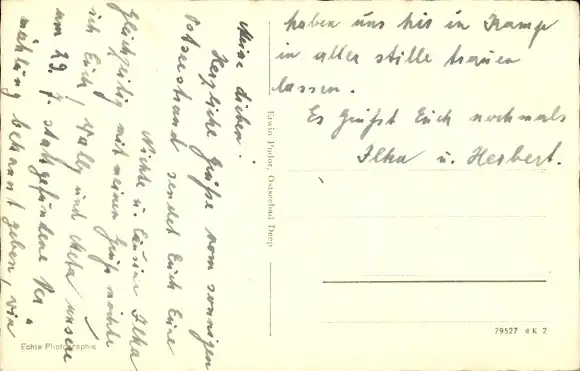 Meine Lieben!
Herzliche Grüße vom sonnigen
Ostseestrand sendet Euch Eure
Nichte u. Cousine Ilka
Gleichzeitig mit meinen Gruß möchte
ich Euch, Wally und Meta unsere
am 29. 7. stattgefundene Ver=
mählung bekannt geben, wir
haben uns hir in Kamp
in aller stille trauen
lassen.
Es Grüßt Euch nochmals
Ilka u. Herbert.
Erwin Pudor, Ostseebad Deep
Echte Photographie
79527 4 K 2